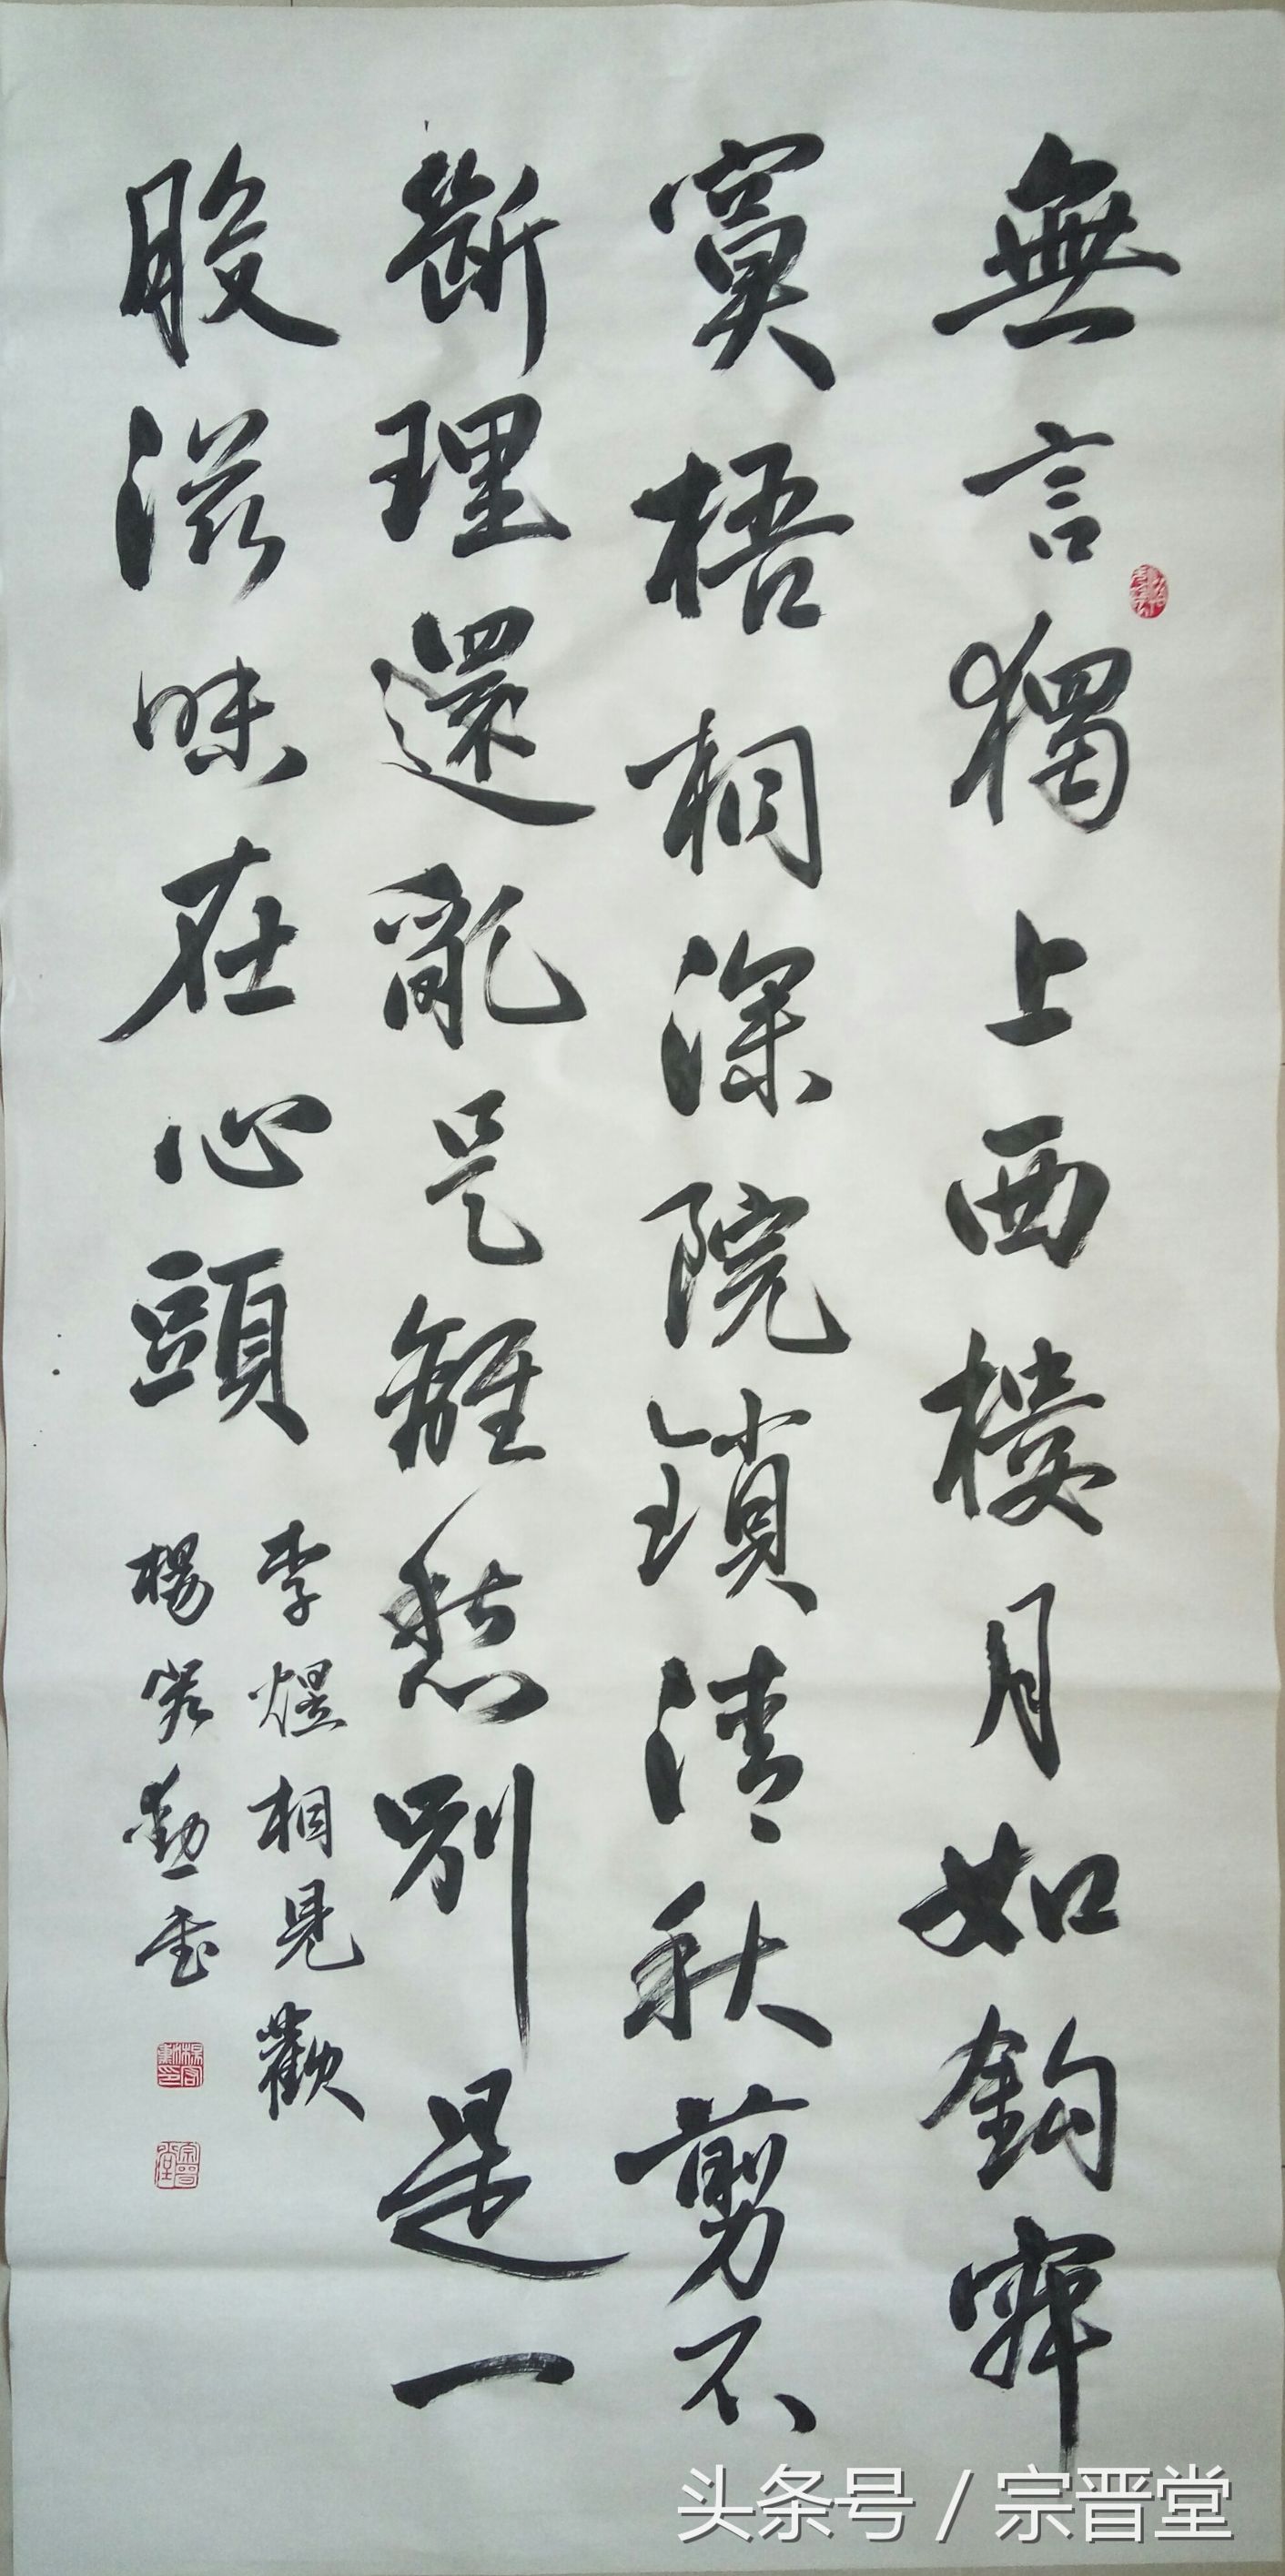 無言獨上西樓月如鉤寂
寞梧桐深院鎖清秋剪不
斷理還亂是離愁別是一
般滋味在心頭
李煜相見歡
楊書
宗晉堂
头条号 / 宗晋堂